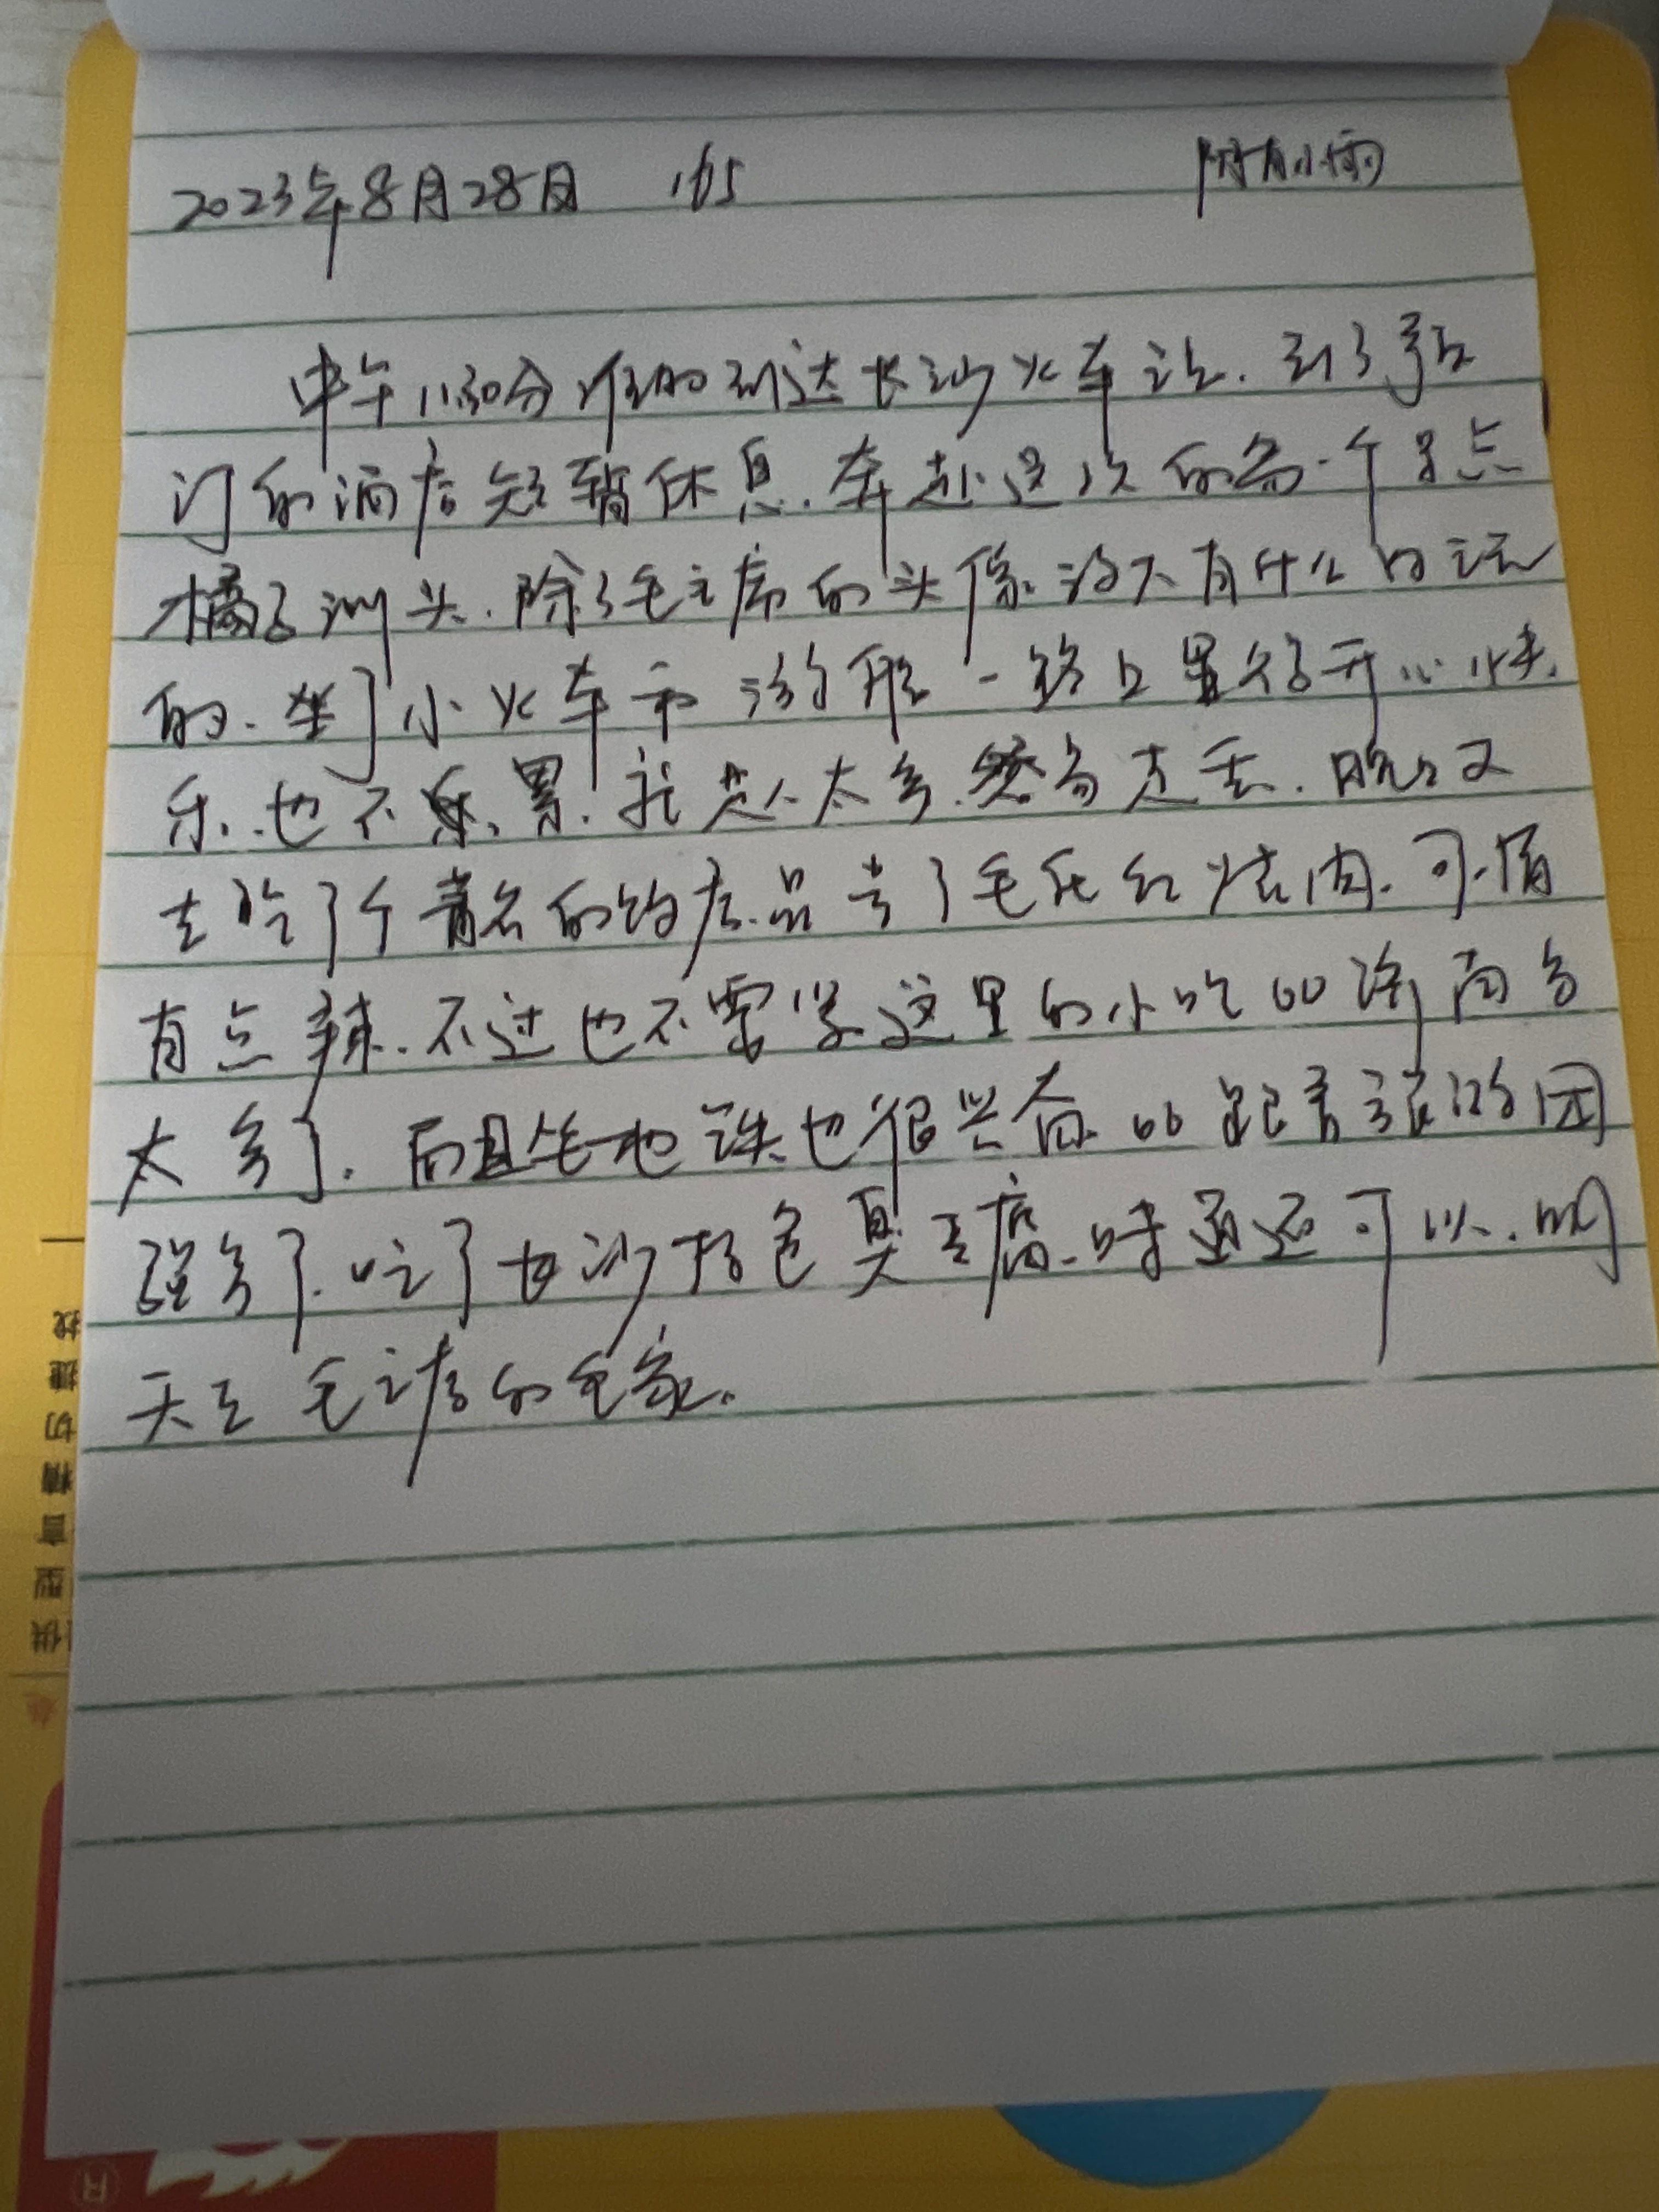 2023年8月28日 阴有小雨
中午11:30分准时到达长沙火车站.到了预
订的酒店短暂休息.奔赴这次的第一个景点
橘子洲头.除了毛主席的头像没有什么可玩
的.坐了小火车一路上还是很开心快
乐.也不累.就是人太多.容易走丢.晚上又
去吃了个著名的饭店品尝了毛氏红烧肉.可惜
有点辣.不过也不要紧这里的小吃比济南多
太多了.而且坐地铁也很兴奋.比跟着旅游团
强多了.吃了长沙特色臭豆腐.味道还可以.明
天去毛主席的老家.
找
捷
切
精
音
型
供
®